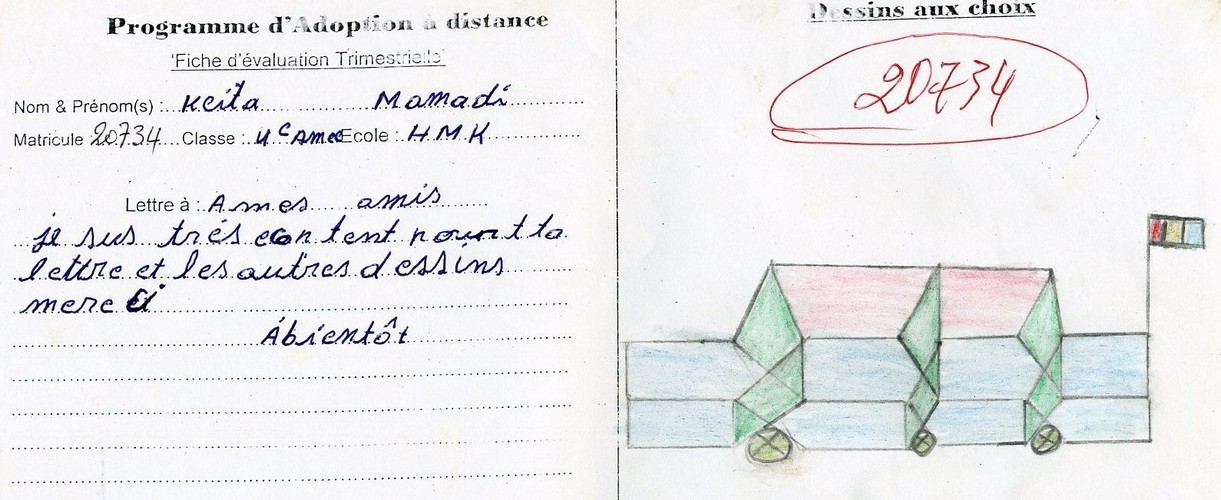 Programme d'Adoption à distance
'Fiche d'évaluation Trimestrielle'
Nom & Prénom(s) : Keita Mamadi
Matricule 20734 Classe : 4e Amee Ecole : H M K
Lettre à : A mes amis
je suis très content pour ta
lettre et les autres dessins
merc ci
Ábientôt
Dessins aux choix
20734